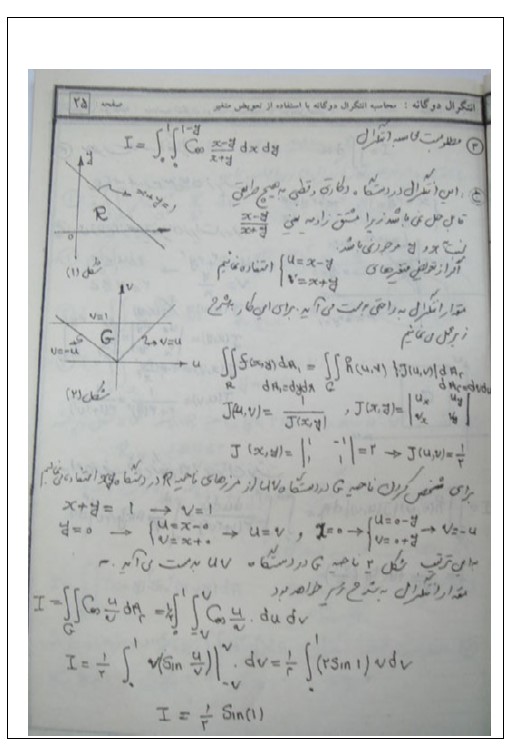 انتگرال دوگانه : محاسبه انتگرال دوگانه با استفاده از تعویض متغیر صفحه ۲۵
۳ مطلوبست محاسبه انتگرال I = ∫₀¹ ∫₀^{1-y} Cos (x-y)/(x+y) dx dy
y
x+y=1
R
0
شکل (۱)
ج. این انتگرال در دستگاه دکارتی و قطبی به هیچ طریقی
قابل حل نمی باشد زیرا مشتق زاویه یعنی (x-y)/(x+y)
نسبت x و y موجود نمی باشد.
اگر از تعویض متغیرهای { u=x-y v=x+y استفاده نمائیم
مقدار انتگرال به راحتی بدست می آید. برای این کار به شرح
زیر عمل می نمائیم
v
v=1
G
v=-u
v=u
u
شکل (۲)
∬_R f(x,y) dA₁ = ∬_G h(u,v) |J(u,v)| dA₂
dA₁=dydx dA₂=dvdu
J(u,v) = 1/J(x,y) , J(x,y) = | u_x u_y v_x v_y |
J(x,y) = | 1 -1 1 1 | = ۲ → J(u,v) = ۱/۲
برای مشخص کردن ناحیه G در دستگاه uv از مرزهای ناحیه R در دستگاه xy استفاده می نمائیم
x+y = 1 → v=1
y=0 → { u=x-0 v=x+0 → u=v , x=0 → { u=0-y v=0+y → v=-u
به این ترتیب شکل ۲ ناحیه G در دستگاه uv بدست می آید.
مقدار انتگرال به شرح زیر خواهد بود
I = ∬_G Cos u/v dA₂ = ½ ∫₀¹ ∫_{-v}^{v} Cos u/v . du dv
I = ۱/۲ ∫₀¹ v(Sin u/v)|_{-v}^{v} . dv = ۱/۲ ∫₀¹ (۲Sin 1) v dv
I = ۱/۲ Sin(1)